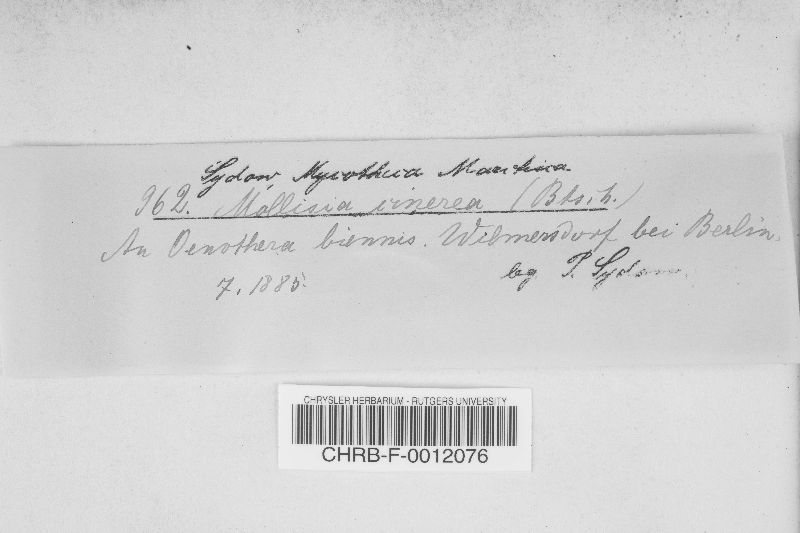 Sydow Mycotheca Marchica
962. Mollisia cinerea (Btsch.)
An Oenothera biennis. Wilmersdorf bei Berlin.
7. 1885.
leg. P. Sydow.
CHRYSLER HERBARIUM - RUTGERS UNIVERSITY
CHRB-F-0012076